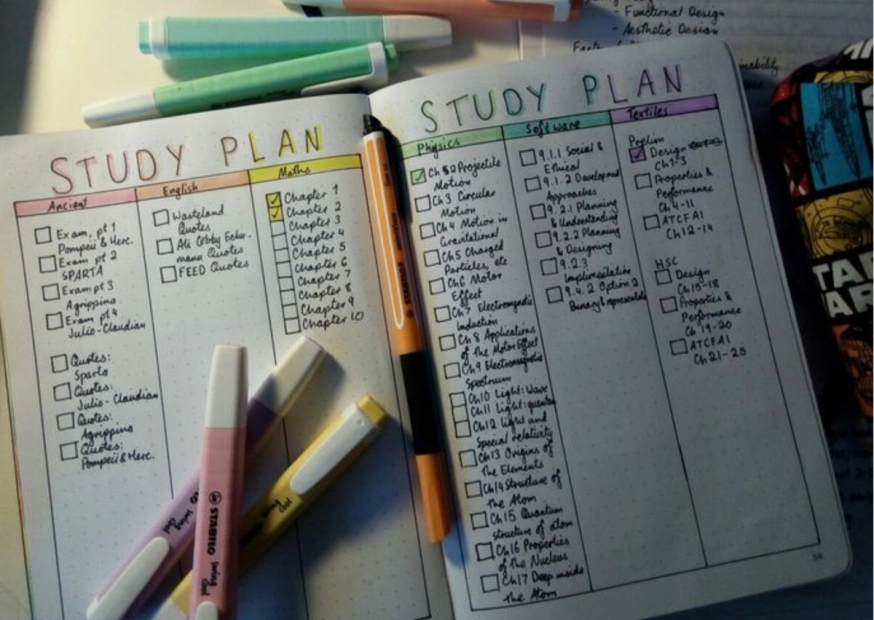 - Functional Design
- Aesthetic Design
STUDY PLAN
Ancient
Exam, pt 1
Pompeii & Herc.
Exam pt 2
SPARTA
Exam pt 3
Agrippina
Exam pt 4
Julio-Claudian
Quotes:
Sparta
Quotes:
Julio-Claudian
Quotes:
Agrippina
Quotes:
Pompeii & Herc.
English
Wasteland
Quotes
Ali Cobby Ecker-
mann Quotes
FEED Quotes
Maths
Chapter 1
Chapter 2
Chapter 3
Chapter 4
Chapter 5
Chapter 6
Chapter 7
Chapter 8
Chapter 9
Chapter 10
STUDY PLAN
Physics
Ch 2 Projectile
Motion
Ch 3 Circular
Motion
Ch 4 Motion in
Gravitational
Ch 5 Charged
Particles, etc
Ch 6 Motor
Effect
Ch 7 Electromagnetic
Induction
Ch 8 Applications
of the Motor Effect
Ch 9 Electromagnetic
Spectrum
Ch10 Light: Wave
Ch11 Light: quantum
Ch 12 Light and
Special relativity
Ch13 Origins of
the Elements
Ch14 Structure of
the Atom
Ch15 Quantum
structure of atom
Ch16 Properties
of the Nucleus
Ch17 Deep inside
the Atom
Software
9.1.1 Social &
Ethical
9.1.2 Development
Approaches
9.2.1 Planning
& Understanding
9.2.2 Planning
& Designing
9.2.3
Implementation
9.4.2 Option 2
Textiles
Prelim
Design
Ch1-3
Properties &
Performance
Ch 4-11
ATCFAI
Ch12-14
HSC
Design
Properties &
Performance
Ch 19-20
ATCFAI
Ch 21-25
STABILO
swing
cool